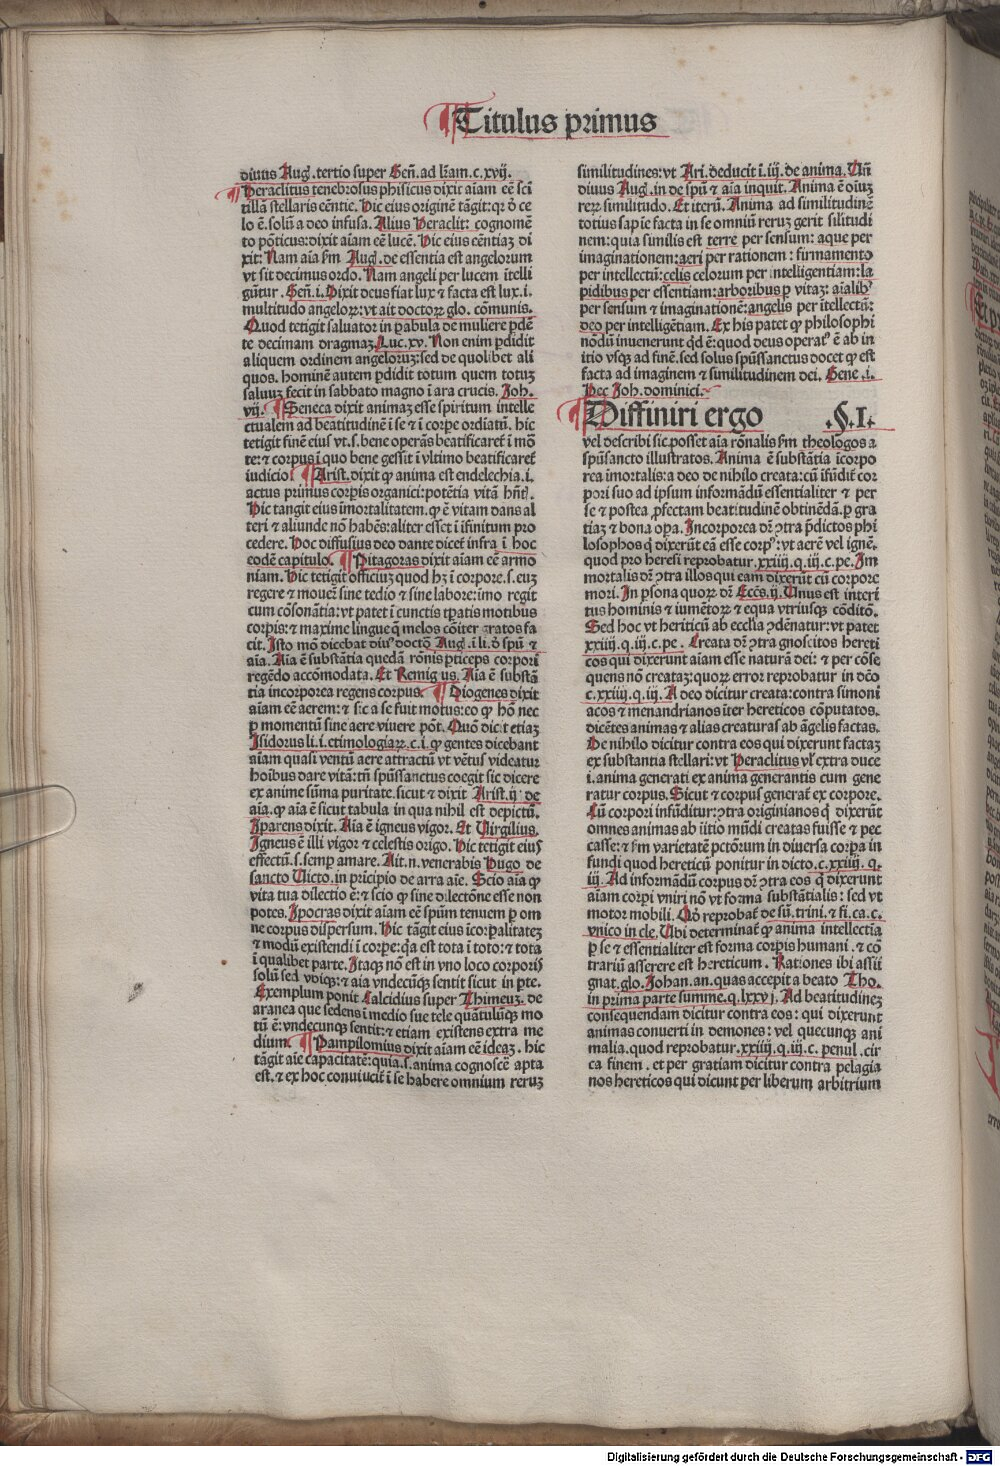 Titulus primus
diuus Aug̃. tertio super Geñ. ad lr̃am. c. xvij.
Heraclitus tenebrosus phisicus dixit aĩam eē sci
tillā stellaris eēntie. Hic eius originē tāgit: qꝛ ð ce
lo ē. solū a deo infusa. Alius Heraclit: cognomē
to pōticus: dixit aĩam eē lucē. Hic eius eēntiaz di
xit: Nam aĩa ẜm Aug̃. de essentia est angelorum
vt sit decimus ordo. Nam angeli per lucem ītelli
gūtur. Geñ. i. Dixit deus fiat lux ⁊ facta est lux. i.
multitudo angeloꝝ: vt ait doctoꝝ glo. cōmunis.
Quod tetigit saluator in ꝑabula de muliere ꝑdē
te decimam dragmaz. Luc. xv. Non enim ꝑdidit
aliquem ordinem angeloruz: sed de quolibet ali
quos. hominē autem ꝑdidit totum quem totuz
saluuz fecit in sabbato magno ī ara crucis. Joh.
vij. ¶ Seneca dixit animaz esse spiritum intelle
ctualem ad beatitudinē ī se ⁊ ī corpe ordiatū. hic
tetigit finē eius vt. s. bene operās beatificaret̃ ī mō
te: ⁊ corpus ī quo bene gessit ī vltimo beatificaret̃
iudicio. ¶ Arist. dixit ꝙ anima est endelechia. i.
actus primus corpis organici: potētia vitā hñt̃.
Hic tangit eius īmortalitatem. ꝙ ē vitam dans al
teri ⁊ aliunde nō habēs: aliter esset ī īfinitum pro
cedere. Hoc diffusius deo dante dicet̃ infra ī hoc
eodē capitulo. ¶ Pitagoras dixit aĩam eē armo
niam. Hic tetigit officiuz quod hꝫ ī corpore. s. euz
regere ⁊ mouer̃ sine tedio ⁊ sine labore: imo regit
cum cōsonātia: vt patet ī cunctis tꝑatis motibus
corpis: ⁊ maxime lingue q̃ melos cōiter gratos fa
cit. Isto mō dicebat diuꝰ doctō Aug̃. ī li. ð spũ ⁊
aĩa. Aĩa ē substātia quedā rōnis ꝑticeps corpori
regēdo accōmodata. Et Remig us. Aĩa ē substā
tia incorporea regens corpus. ¶ Diogenes dixit
aĩam eē aerem: ⁊ sic a se fuit motus: eo ꝙ hō nec
ꝑ momentū sine aere viuere pōt. Quō dicit etiaz
Isidorus li. i. etimologiaꝝ. c. i. ꝙ gentes dicebant
aĩam quasi ventū aere attractū vt vētus videatur
hoĩbus dare vitā: tñ spũssanctus coegit sic dicere
ex anime sūma puritate. sicut ⁊ dixit Arist. ij. de
aĩa. ꝙ aĩa ē sicut tabula in qua nihil est depictū.
Iparens dixit. Aĩa ē igneus vigor. Et Virgilius.
Igneus ē illi vigor ⁊ celestis origo. Hic tetigit eiuſ
effectū. s. semp amare. Ait. n. venerabis Hugo de
sancto Victo. in prīcipio de arra aĩe. Scio aĩa ꝙ
vita tua dilectio ē: ⁊ scio ꝙ sine dilectōne esse non
potes. Ipocras dixit aĩam eē spĩum tenuem ꝑ om
ne corpus dispersum. Hic tāgit eius īcorꝑalitatez
⁊ modū existendi ī corpe: q̃a est tota ī toto: ⁊ tota
ī qualibet parte. Itaqꝫ nō est in vno loco corporis
solū sed vbiqꝫ: ⁊ aĩa vndecūqꝫ sentit sicut in pte.
Exemplum ponit Calcidius super Thimeuz. de
aranea que sedens ī medio sue tele quātulūqꝫ mo
tū ē: vndecunqꝫ sentit: ⁊ etiam existens extra me
dium. ¶ Pampilomius dixit aĩam eē ideaz. hic
tāgit aĩe capacitatē: quia. s. anima cognoscē apta
est. ⁊ ex hoc conuiucit̃ ī se habere omnium reruz
similitudines: vt Ari. deducit ī. iij. de anima. Vñ
diuus Aug̃. in de spũ ⁊ aĩa inquit. Anima ē oĩuz
reꝝ similitudo. Et iterū. Anima ad similitudinē
totius sapĩe facta in se omniū reruz gerit silitudi
nem: quia similis est terre per sensum: aque per
imaginationem: aeri per rationem: firmamento
per intellectū: celis celorum per ītelligentiam: la
pidibus per essentiam: arboribus ꝑ vitaz: aĩalibꝰ
per sensum ⁊ imaginationē: angelis per ītellectū:
deo per intelligētiam. Ex his patet ꝙ philosophi
nōdū inuenerunt qd̃ ē: quod deus operatꝰ ē ab in
itio vsqꝫ ad finē. sed solus spũssanctus docet ꝙ est
facta ad imaginem ⁊ similitudinem dei. Gene. i.
Hec Joh. dominici.
Diffiniri ergo .§.I.
vel describi sic posset aĩa rōnalis ẜm theologos a
spũsancto illustratos. Anima ē substātia īcorpo
rea īmortalis: a deo de nihilo creata: cū īfūdit̃ cor
pori suo ad ipsum informādū essentialiter ⁊ per
se ⁊ postea ꝓfectam beatitudinē obtinēdā. ꝑ gra
tiaz ⁊ bona oꝑa. Incorporea dr̃ ꝯtra p̃dictos phi
losophos q̃ dixerūt eā esse corpꝰ: vt aerē vel ignē.
quod pro heresũ reprobatur. xxiiij. q. iij. c. pe. Im
mortalis dr̃ ꝯtra illos qui eam dixerūt cū corpore
mori. In ꝑsona quoꝝ dr̃ Eccs̃. ij. Vnus est interi
tus hominis ⁊ iumētoꝝ ⁊ equa vtriusqꝫ cōditō.
Sed hoc vt heriticū ab ecclĩa ꝯdēnatur: vt patet
xxiij. q. iij. c. pe. Creata dr̃ ꝯtra gnoscitos hereti
cos qui dixerunt aĩam esse naturā dei: ⁊ per cōse
quens nō creataz: quoꝝ error reprobatur in dcō
c. xxiij. q. iij. A deo dicitur creata: contra simoni
acos ⁊ menandrianos īter hereticos cōputatos.
dicētes animas ⁊ alias creaturas ab āgelis factas.
De nihilo dicitur contra eos qui dixerunt factaz
ex substantia stellari: vt Heraclitus vl̃ extra duce
i. anima generati ex anima generantis cum gene
ratur corpus. Sicut ⁊ corpus generat̃ ex corpore.
Cū corpori infūditur: ꝯtra originianos q̃ dixerūt
omnes animas ab īitio mūdi creatas fuisse ⁊ pec
casse: ⁊ ẜm varietatē pctōrum in diuersa corpa in
fundi quod hereticū ponitur in dicto. c. xxiiij. q.
iij. Ad informādū corpus dr̃ ꝯtra eos q̃ dixerunt
aĩam corpi vniri nō vt forma substātialis: sed vt
motor mobili. Qđ reprobat̃ de sū. trini. ⁊ fi. ca. c.
vnico in cle. Vbi determinat̃ ꝙ anima intellectia
ꝑ se ⁊ essentialiter est forma corpis humani. ⁊ cō
trariū asserere est hereticum. Rationes ibi assi
gnat. glo. Johan. an. quas accepit a beato Tho.
in prima parte summe. q. lxxvj. Ad beatitudinez
consequendam dicitur contra eos: qui dixerunt
animas conuerti in demones: vel quecunqꝫ ani
malia. quod reprobatur. xxiiij. q. iij. c. penul. cir
ca finem. et per gratiam dicitur contra pelagia
nos hereticos qui dicunt per liberum arbitrium
Digitalisierung gefördert durch die Deutsche Forschungsgemeinschaft - DFG